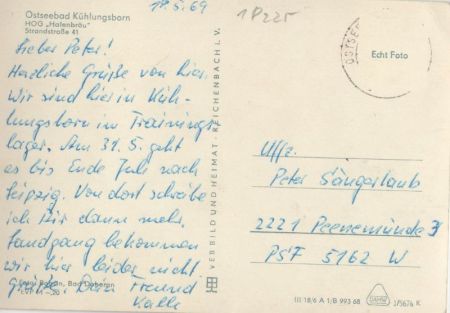 18.5.69
1P225
Ostseebad Kühlungsborn
HOG „Hafenbräu"
Strandstraße 41
Lieber Peter!
Herzliche Grüße von hier.
Wir sind hier in Küh-
lungsborn im Trainings-
lager. Am 31.5. geht
es bis Ende Juli nach
Leipzig. Von dort schreibe
ich Dir dann mehr.
Landgang bekommen
wir hier leider nicht
Dein Freund
Kalle
Bad Doberan
VEB BILD UND HEIMAT · REICHENBACH I. V.
Echt Foto
OSTSEE
Uffz.
Peter Sängerlaub
2221 Peenemünde
PSF 5162 W
III 18/6 A 1/B 993 68
J/5676 K